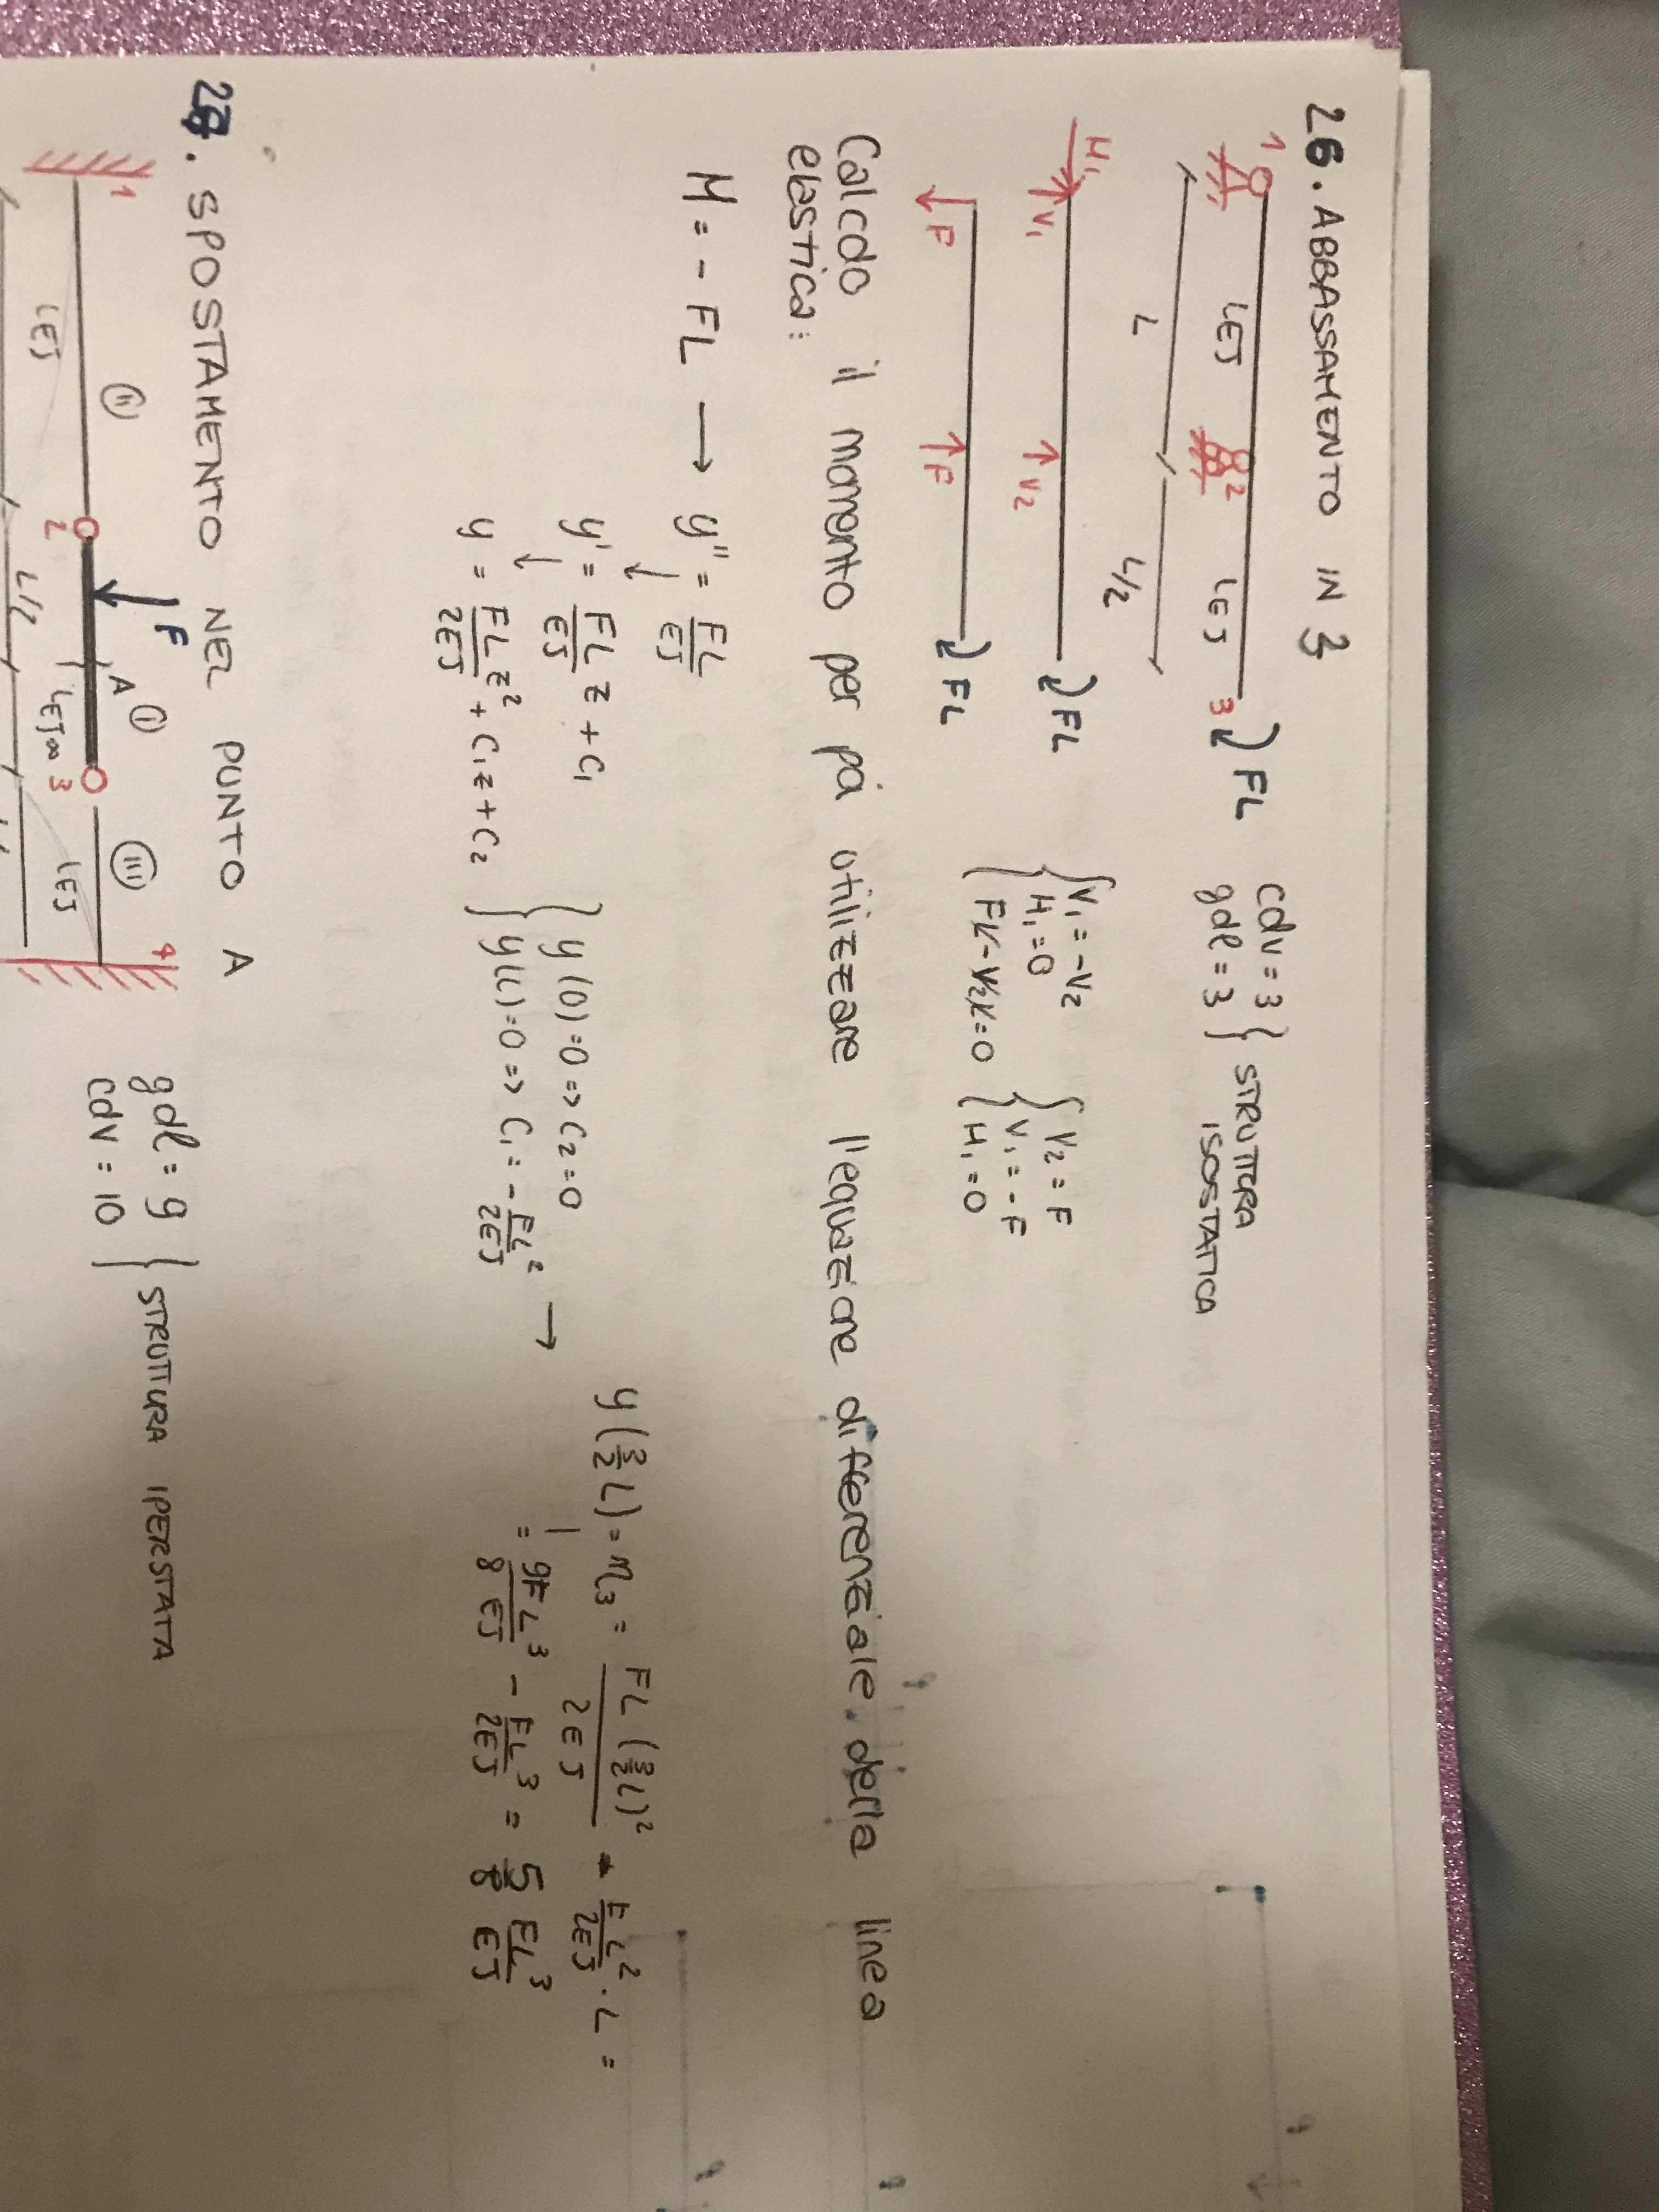 26. ABBASSAMENTO IN 3
1 LEJ 2 LEJ 3 FL
L L/2
cdv = 3
gdl = 3
STRUTTURA
ISOSTATICA
H₁ V₁ V₂ FL
F F FL
V₁ = -V₂
H₁ = 0
FL - V₂L = 0
V₂ = F
V₁ = - F
H₁ = 0
Calcolo il momento per poi utilizzare l'equazione differenziale della linea
elastica:
M = - FL → y'' = FL/EJ
y' = FL/EJ z + C₁
y = FL/2EJ z² + C₁z + C₂
y(0) = 0 => C₂ = 0
y(L) = 0 => C₁ = - FL²/2EJ →
y(3/2 L) = η₃ = FL (3/2 L)²/2EJ - FL²/2EJ · L =
= 9FL³/8EJ - FL³/2EJ = 5/8 FL³/EJ
27. SPOSTAMENTO NEL PUNTO A
1 LEJ II 2 F A I LEJ∞ 3 III LEJ 4
L/2
gdl = 9
cdv = 10
STRUTTURA IPERSTATA